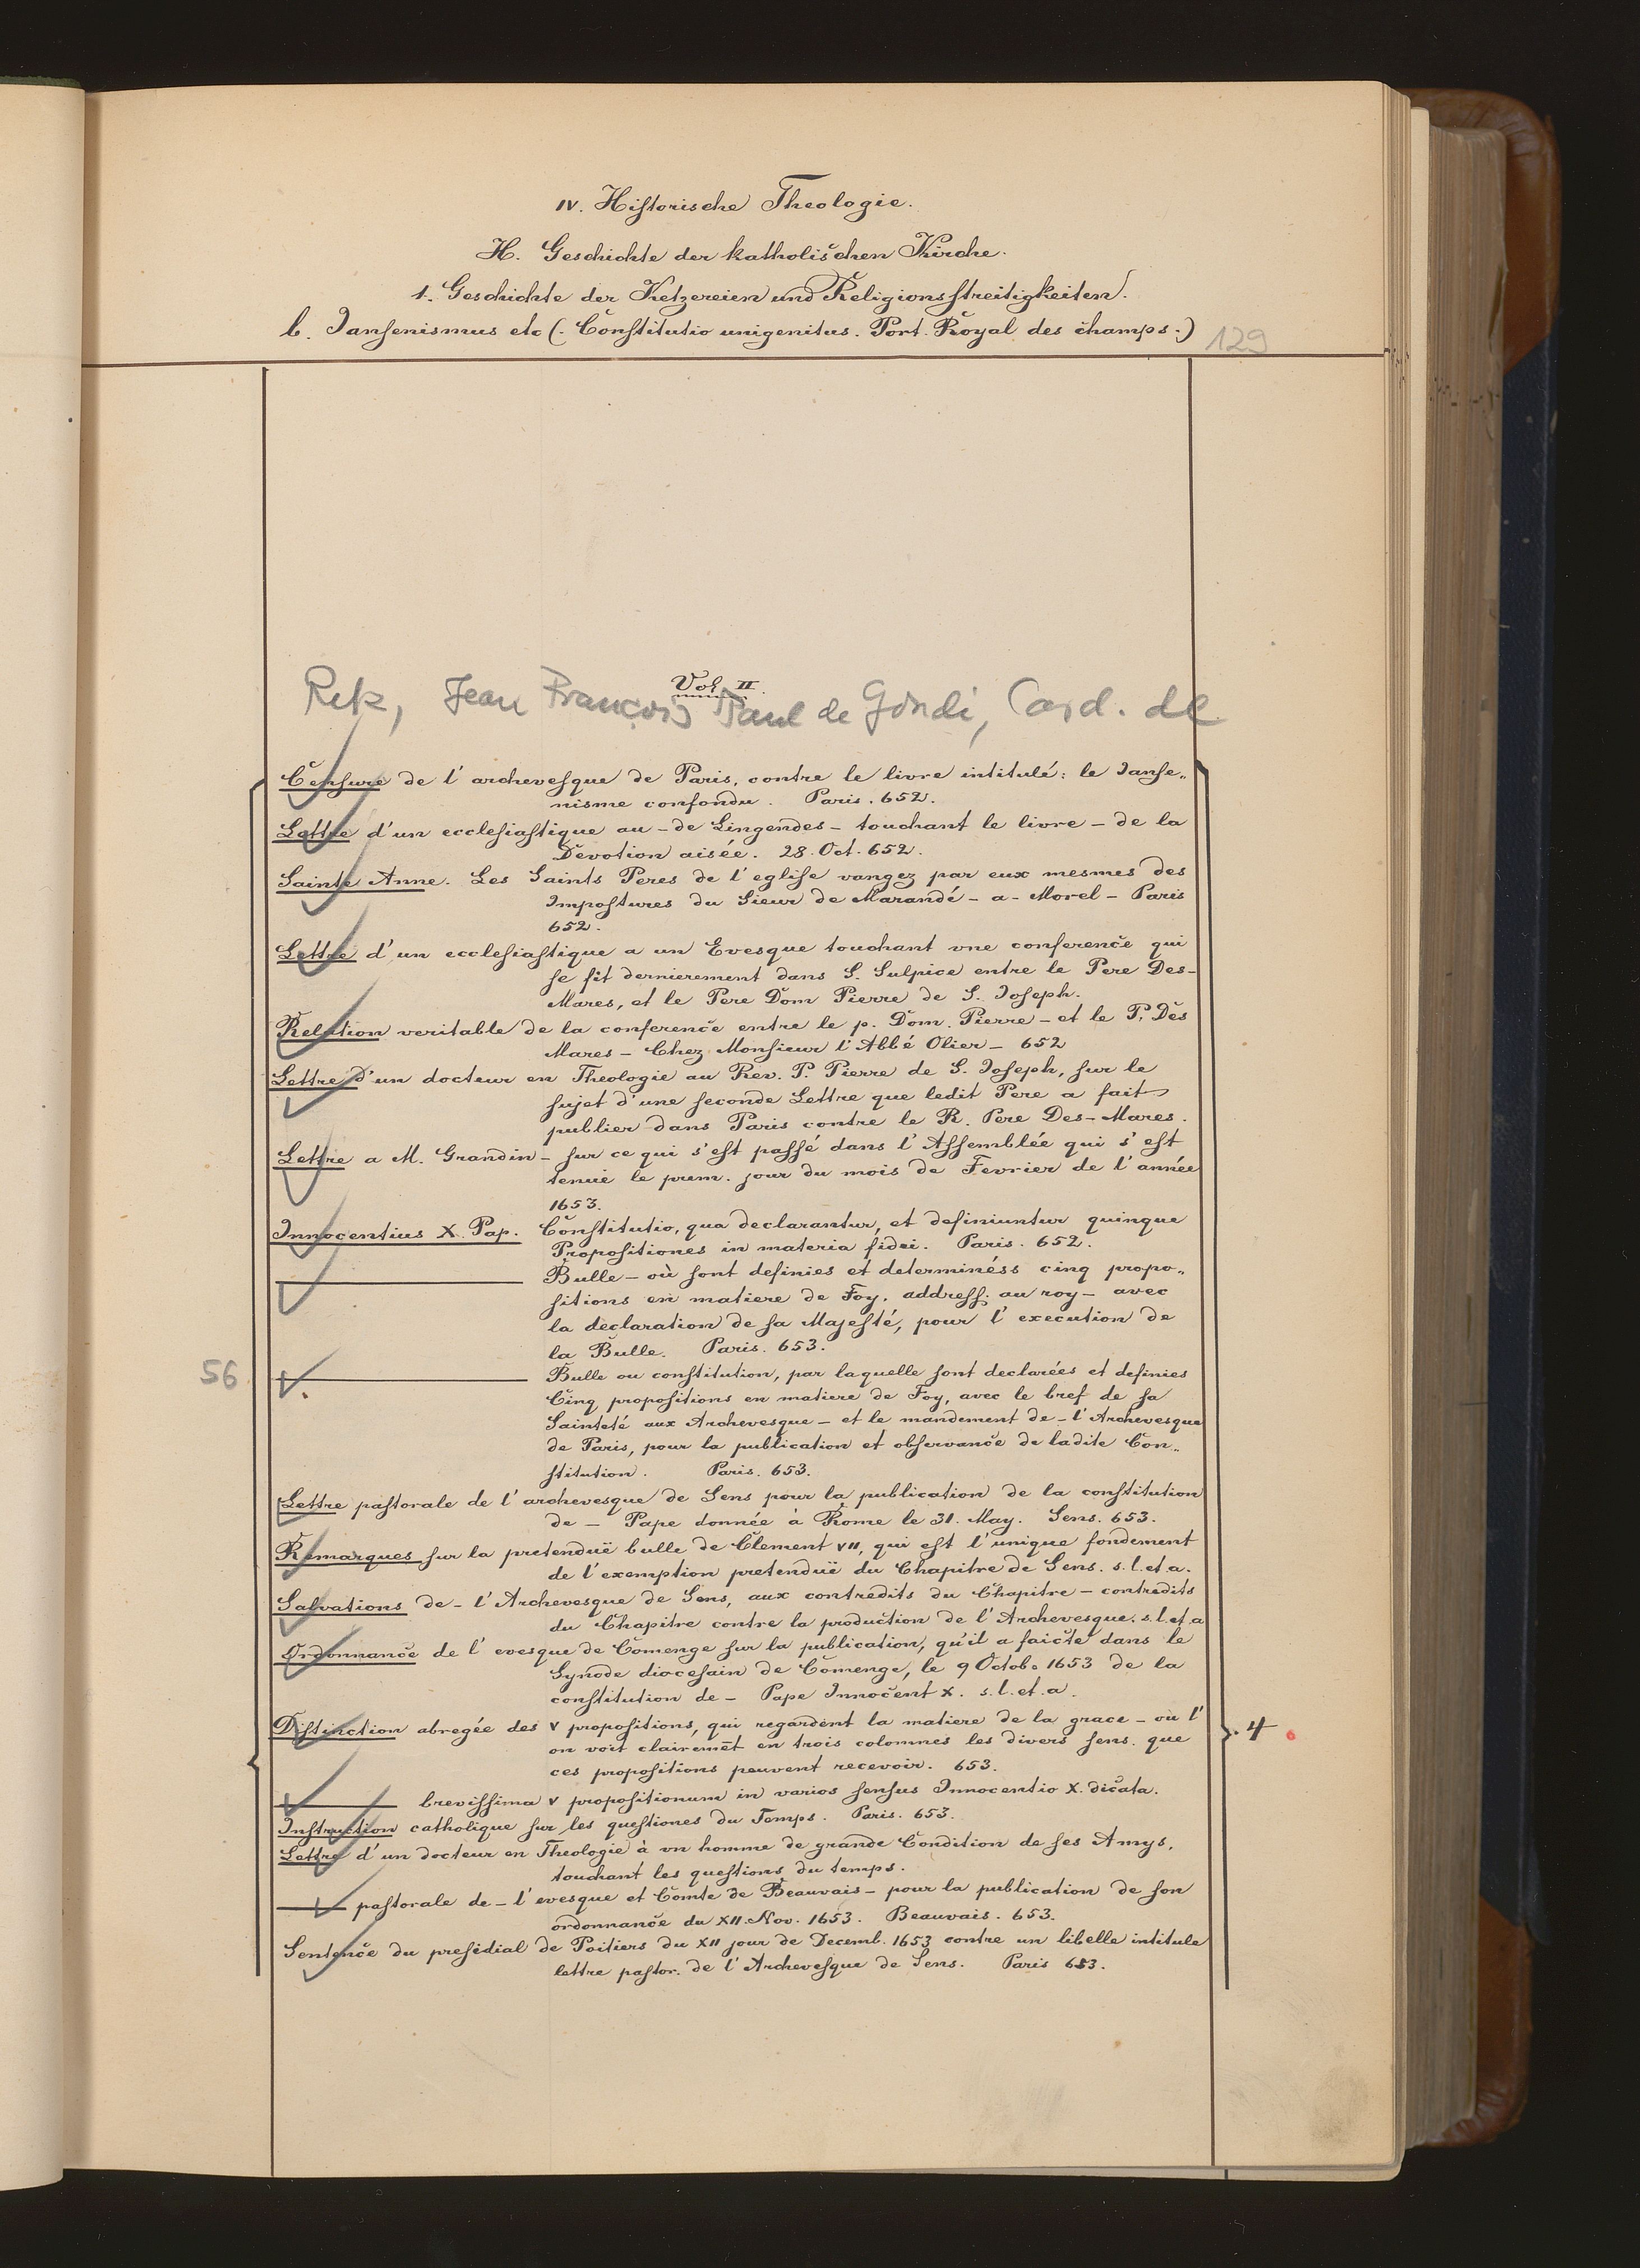 IV. Historische Theologie.
H. Geschichte der katholischen Kirche.
1. Geschichte der Ketzereien und Religionsstreitigkeiten.
b. Jansenismus etc (. Constitutio unigenitus. Port. Royal des champs.)
129
Vol. II.
Retz, Jean François Paul de Gondi, Card. de
Censure de l'archevesque de Paris, contre le livre intitulé: le Janse„
nisme confondu. Paris. 652.
Lettre d'un ecclesiastique au - de Lingendes - touchant le livre - de la
Devotion aisée. 28. Oct. 652.
Sainte Anne. Les Saints Peres de l'eglise vangez par eux mesmes des
Impostures du Sieur de Marandé - a - Morel - Paris
652.
Lettre d'un ecclesiastique a un Evesque touchant vne conference qui
se fit dernierement dans S. Sulpice entre le Pere Des-
Mares, et le Pere Dom Pierre de S. Joseph.
Relation veritable de la conference entre le p. Dom. Pierre - et le P. Des
Mares - Chez Monsieur l'Abbé Olier - 652
Lettre d'un docteur en Theologie au Rev. P. Pierre de S. Joseph, sur le
sujet d'une seconde Lettre que ledit Pere a fait
publier dans Paris contre le R. Pere Des-Mares.
Lettre a M. Grandin - sur ce qui s'est passé dans l'Assemblée qui s'est
tenuë le prem. jour du mois de Fevrier de l'année
1653.
Innocentius X. Pap. Constitutio, qua declarantur, et definiuntur quinque
Propositiones in materia fidei. Paris. 652.
Bulle - où sont definies et determinéss cinq propo„
sitions en matiere de Foy, address. au roy - avec
la declaration de sa Majesté, pour l'execution de
la Bulle. Paris. 653.
56 Bulle ou constitution, par laquelle sont declarées et definies
Cinq propositions en matiere de Foy, avec le bref de sa
Sainteté aux Archevesque - et le mandement de - l'Archevesque
de Paris, pour la publication et observance de ladite Con„
stitution. Paris. 653.
Lettre pastorale de l'archevesque de Sens pour la publication de la constitution
de - Pape donnée à Rome le 31. May. Sens. 653.
Remarques sur la pretenduë bulle de Clement VII, qui est l'unique fondement
de l'exemption pretenduë du Chapitre de Sens. s. l. et a.
Salvations de - l'Archevesque de Sens, aux contredits du Chapitre - contredits
du Chapitre contre la production de l'Archevesque. s. l. et a
Ordonnance de l'evesque de Comenge sur la publication, qu'il a faicte dans le
Synode diocesain de Comenge, le 9 Octobe 1653 de la
constitution de - Pape Innocent X. s. l. et. a.
Distinction abregée des V propositions, qui regardent la matiere de la grace - où l'
on voit clairemēt en trois colomnes les divers sens. que
ces propositions peuvent recevoir. 653.
4
brevissima V propositionum in varios sensus Innocentio X. dicata.
Instruction catholique sur les questiones du Temps. Paris. 653.
Lettre d'un docteur en Theologie à vn homme de grande Condition de ses Amys,
touchant les questions du temps.
pastorale de - l'evesque et Comte de Beauvais - pour la publication de son
ordonnance du XII. Nov. 1653. Beauvais. 653.
Sentence du presidial de Poitiers du XII jour de Decemb. 1653 contre un libelle intitule
lettre pastor. de l'Archevesque de Sens. Paris 653.